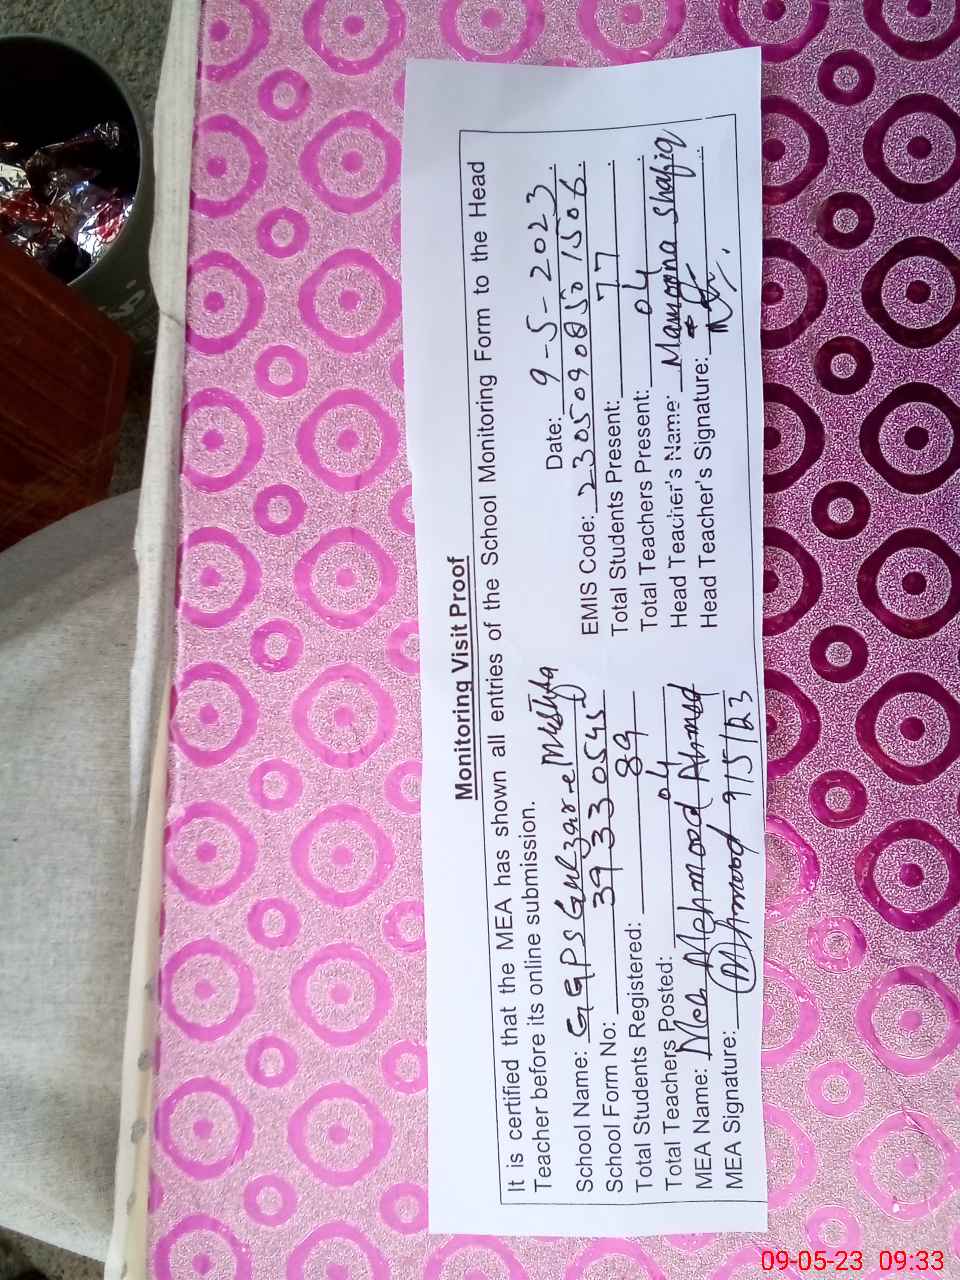 Monitoring Visit Proof
It is certified that the MEA has shown all entries of the School Monitoring Form to the Head
Teacher before its online submission.
School Name: GGPS Gulzar-e Mustafa
Date: 9-5-2023
School Form No: 39330545
EMIS Code: 2305090850 1506
Total Students Registered: 89
Total Students Present: 77
Total Teachers Posted: 04
Total Teachers Present: 04
MEA Name: Mea Mehmood Ahmed
Head Teacher's Name: Mamoona Shafiq
MEA Signature: Mehmood 9/5/23
Head Teacher's Signature:
09-05-23 09:33